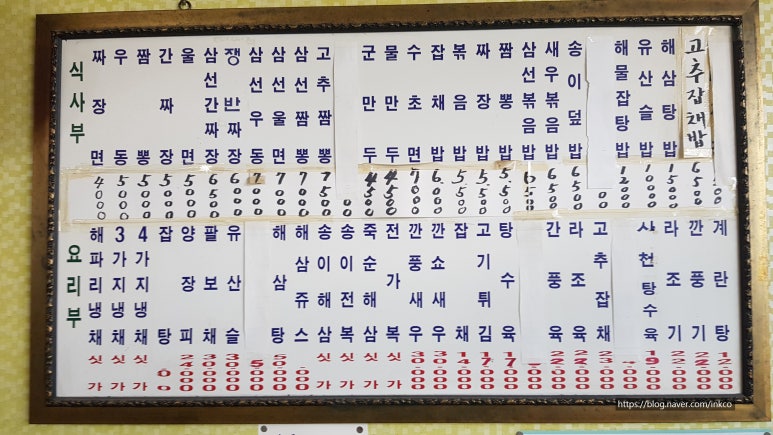 식사부
짜장면 4000
우동 5000
짬뽕 5000
간짜장 5000
울면 5000
삼선간짜장 6500
쟁반짜장 6000
삼선우동 7000
삼선울면 7000
삼선짬뽕 7000
고추짬뽕 7500
군만두 4500
물만두 4500
수초면 7000
잡채밥 6000
볶음밥 5500
짜장밥 5500
짬뽕밥 5500
삼선볶음밥 6500
새우볶음밥 6500
송이덮밥 6500
해물잡탕밥 12000
유산슬밥
해삼탕밥
고추잡채밥 6500
요리부
해파리냉채 싯가
3가지냉채 싯가
4가지냉채 싯가
잡탕
양장피
팔보채 30000
유산슬 30000
해삼탕 50000
해삼쥬스
송이해삼 싯가
송이전복 싯가
죽순해삼 싯가
전가복 싯가
깐풍새우 30000
깐쇼새우 30000
잡채 14000
고기튀김 17000
탕수육 17000
간풍육 22000
라조육 22000
고추잡채
사천탕수육 19000
라조기 22000
깐풍기 22000
계란탕 12000
https://blog.naver.com/inkco